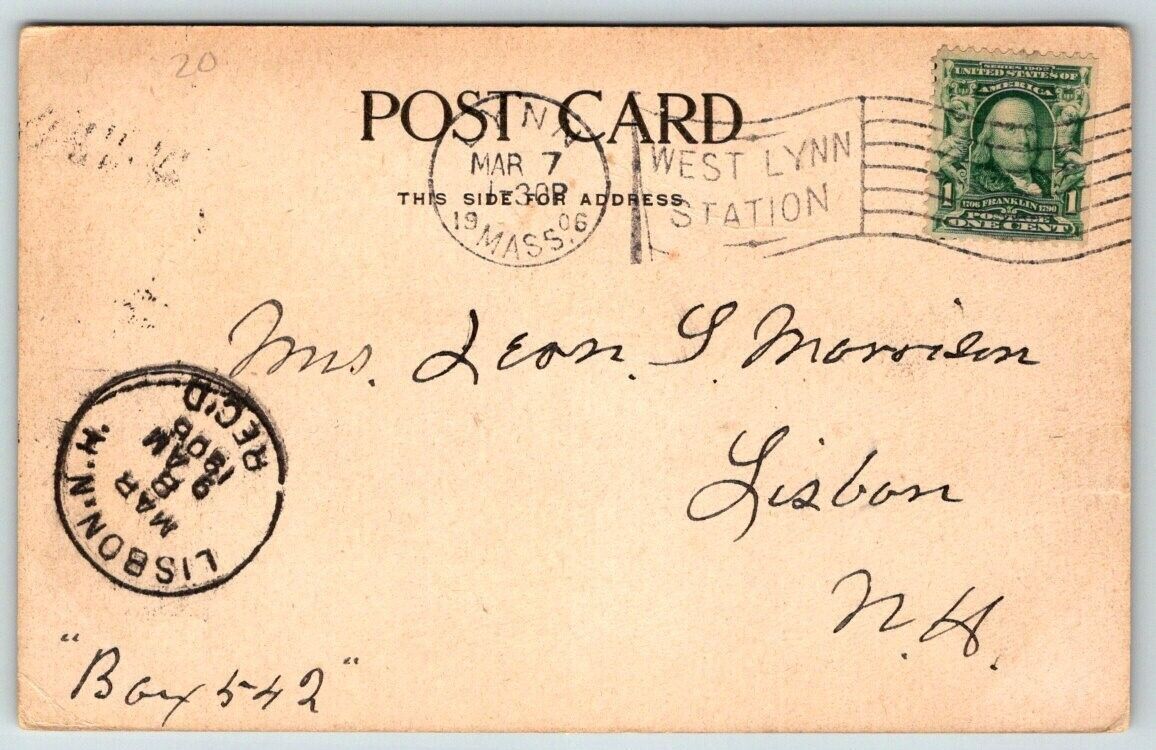 20
POST CARD
THIS SIDE FOR ADDRESS
LYNN
MAR 7
1-30P
19 06
MASS.
WEST LYNN
STATION
SERIES 1902
UNITED STATES OF
AMERICA
1 1706 FRANKLIN 1790 1
POSTAGE
ONE CENT
Mrs. Leon. S Morrison
Lisbon
N.H.
LISBON, N.H.
MAR
AM
1906
REC'D
"Box 542"